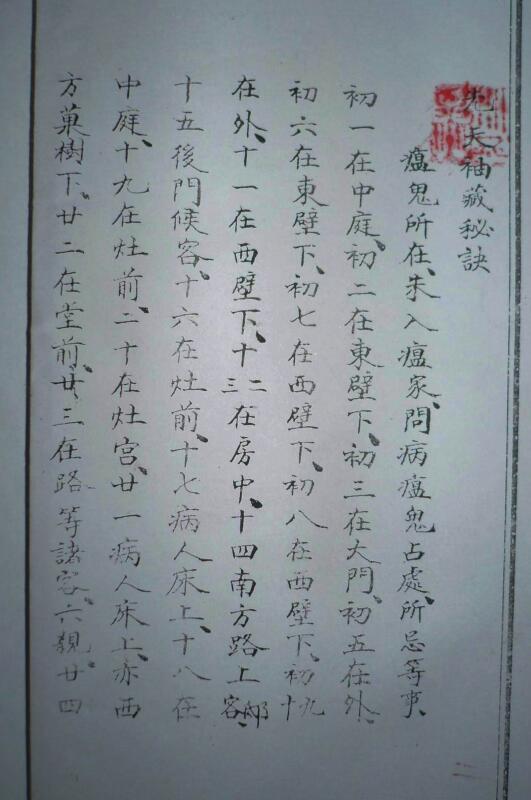 先天袖藏秘訣
瘟鬼所在、未入瘟家、問病瘟鬼占處、所忌等事、
初一在中庭、初二在東壁下、初三在大門、初五在外、
初六在東壁下、初七在西壁下、初八在西壁下、初九十
在外、十一在西壁下、十二三在房中、十四南方路上邸客、
十五後門候客、十六在灶前、十七病人床上、十八在
中庭、十九在灶前、二十在灶宫、廿一病人床上、亦西
方菓樹下、廿二在堂前、廿三在路等諸客、六親、廿四